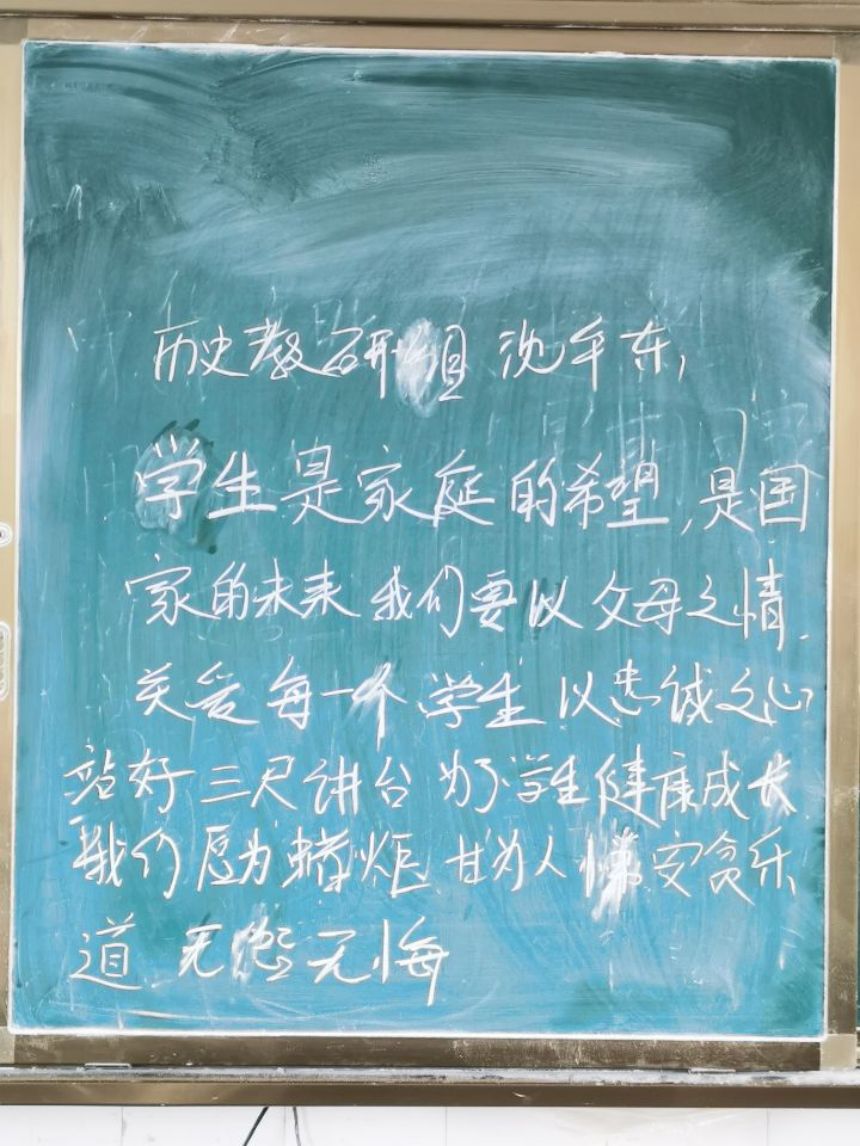 历史教研组 沈东,
学生是家庭的希望,是国
家的未来 我们要以父母之情,
关爱每一个学生 以忠诚之心
站好三尺讲台 为了学生健康成长
我们愿为蜡炬 甘为人梯 安贫乐
道 无怨无悔